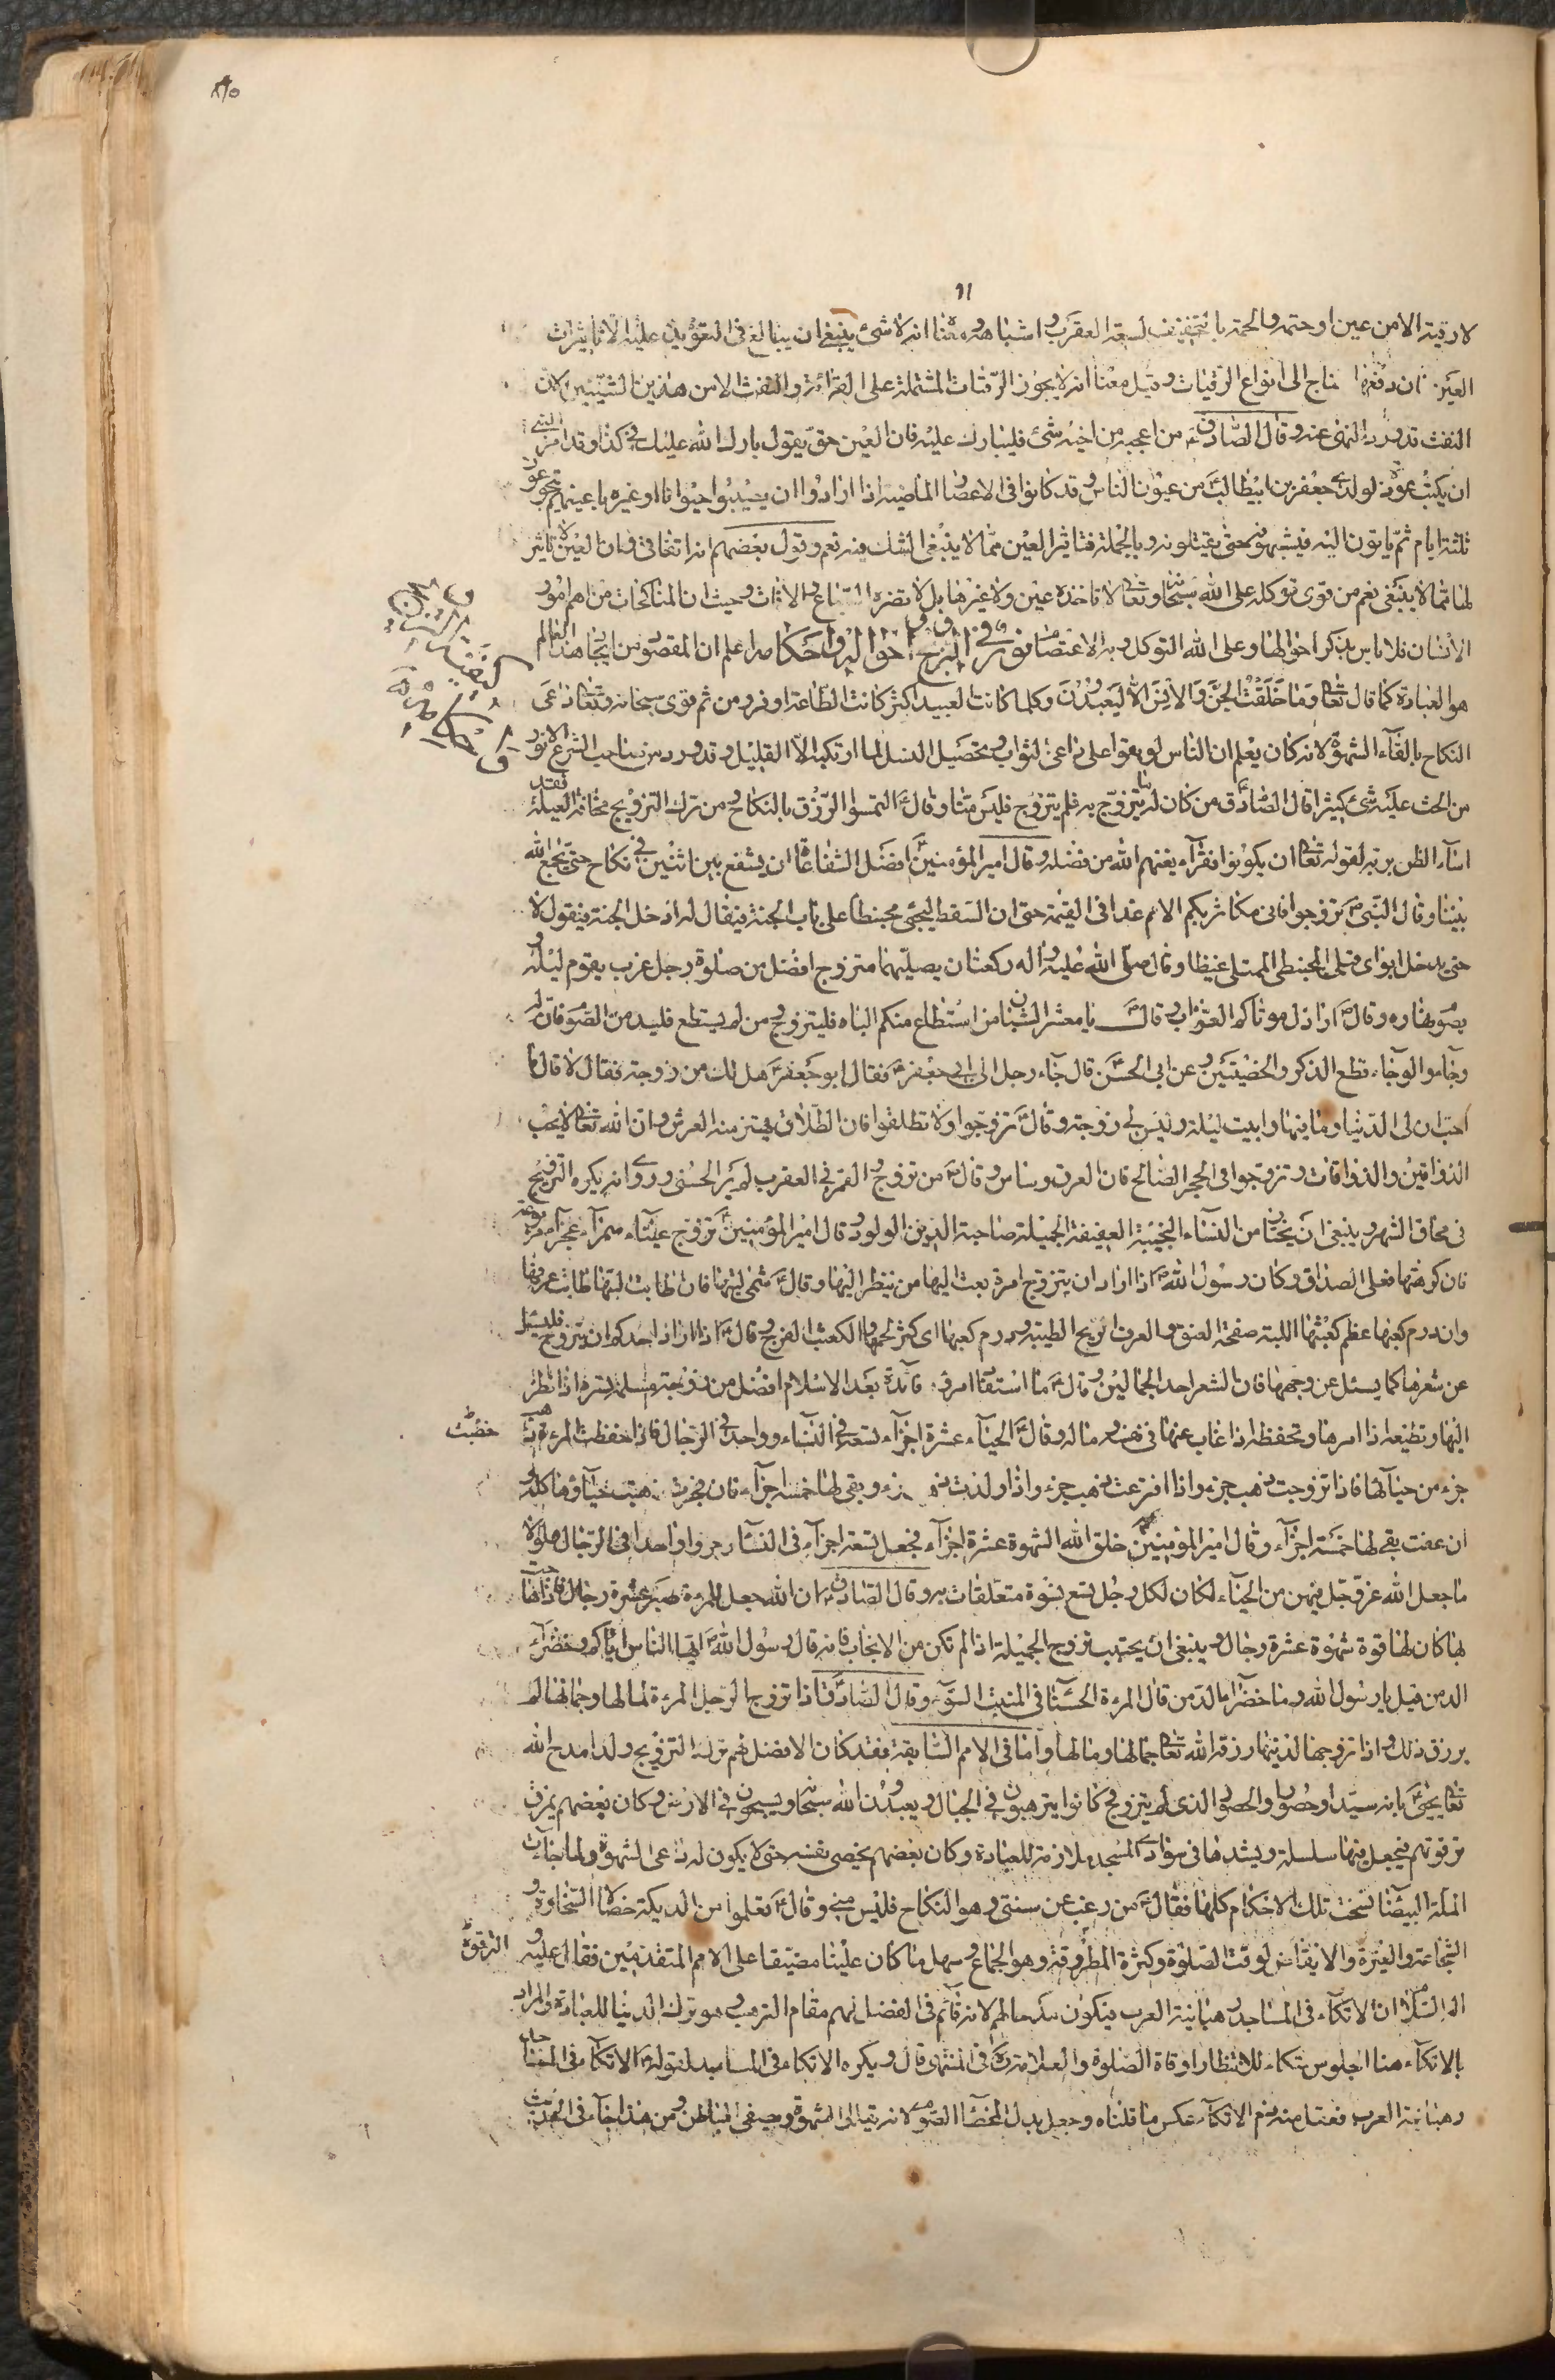 لا رقية الا من عين او حمة والحمة بالتخفيف لسعة العقرب واشباهه ومعناه انه لا شئ ينبغى ان يبالغ فى التعويذ عليه الا تاثيرات
العين فان دفعها يحتاج الى انواع الرقيات وقيل معناه انه لا يجوز الرقيات المشتملة على القرائة والنفث الا من هذين الشيئين لان
النفث قد ورد النهى عنه وقال الصادق ع من اعجبه من اخيه شئ فليبارك عليه فان العين حق يقول بارك الله عليك وكذا وقد امر النبى
ان يكتب عوذة لولدى جعفر بن ابيطالب من عيون الناس وقد كانوا فى الاعصار الماضية اذا ارادوا ان يصيبوا حيوانا او غيره باعينهم تجوعوا
ثلثة ايام ثم ياتون اليه فيشبهونه حتى يقتلونه وبالجملة فتاثير العين مما لا ينبغى الشك فيه نعم وقول بعضهم انه اتفاقى وان العين لا تاثير
لها مما لا ينبغى نعم من قوى توكله على الله سبحانه وتعالى لا تاخذه عين ولا غيرها بل لا تضره السباع والاناث وحيث ان المناكحات من اهم امور
الانسان فلا باس بذكر احوالها وعلى الله التوكل وبه الاعتصام نور فى التزويج احواله واحكامه اعلم ان المقصود من ايجاد هذا العالم
هو العبادة كما قال تعالى وما خلقت الجن والانس الا ليعبدون وكلما كانت العبيد اكثر كانت الطاعة اوفر ومن ثم قوى سبحانه وتعالى دواعى
النكاح بالقاء الشهوة لانه كان يعلم ان الناس لو بقوا على داعى الثواب وتحصيل النسل لما ارتكبه الا القليل وقد ورد من صاحب الشرع الانور
من الحث عليه شئ كثير قال الصادق ع من كان له ما يتزوج به فلم يتزوج فليس منا وقال ع التمسوا الرزق بالنكاح ومن ترك التزويج مخافة العيلة فقد
اساء الظن بربه لقوله تعالى ان يكونوا فقراء يغنهم الله من فضله وقال امير المؤمنين ع افضل الشفاعات ان يشفع بين اثنين فى نكاح حتى يجمع الله
بينهما وقال النبى ص تزوجوا فانى مكاثر بكم الامم غدا فى القيمة حتى ان السقط ليجئ محبنطا على باب الجنة فيقال له ادخل الجنة فيقول لا
حتى يدخل ابواى قبلى المحبنطى الممتلى غيظا وقال صلى الله عليه واله ركعتان يصليهما متزوج افضل من صلوة رجل عزب يقوم ليله
ويصوم نهاره وقال ع اراذل موتاكم العزاب وقال يا معشر الشبان من استطاع منكم الباه فليتزوج ومن لم يستطع فليدمن الصوم فان له
وجآء والوجآء قطع الذكر والخصيتين وعن ابى الحسن قال جآء رجل الى ابى جعفر ع فقال ابو جعفر ع هل لك من زوجة فقال لا قال ما
احب ان لى الدنيا وما فيها وابيت ليلة وليس لى زوجة وقال ع تزوجوا ولا تطلقوا فان الطلاق يهتز منه العرش وان الله تعالى لا يحب
الذواقين والذواقات وتزوجوا فى الحجر الصالح فان العرق دساس وقال ع من تزوج والقمر فى العقرب لم ير الحسنى وروى انه يكره التزويج
فى محاق الشهر وينبغى ان يختار من النساء النجيبة العفيفة الجميلة صاحبة الدين الولود وقال امير المؤمنين ع تزوج عيناء سمراء عجزاء مربوعة
فان كرهتها فعلى الصداق وكان رسول الله ص اذا اراد ان يتزوج امرة بعث اليها من ينظر اليها وقال ع شمى ليتها فان طابت ليتها طاب عرفها
وان درم كعبها عظم كعثبها الليتة صفحة العنق والعرف الريح الطيبة ودرم كعبها اى كثر لحمها والكعثب الفرج وقال ع اذا اراد احدكم ان يتزوج فليسئل
عن شعرها كما يسئل عن وجهها فان الشعر احد الجمالين وقال ع ما استفاد امرؤ فائدة بعد الاسلام افضل من زوجة مسلمة تسره اذا نظر
اليها وتطيعه اذا امرها وتحفظه اذا غاب عنها فى نفسها وماله وقال ع الحياء عشرة اجزاء تسعة فى النساء وواحد فى الرجال فاذا خفضت المرءة ذهب
خفضت
جزء من حيآئها فاذا تزوجت ذهب جزء واذا افترعت ذهب جزء واذا ولدت ذهب جزء وبقى لها خمسة اجزآء فان فجرت ذهبت حيآؤها كله
ان عفت بقى لها خمسة اجزآء وقال امير المؤمنين ع خلق الله الشهوة عشرة اجزآء فجعل تسعة اجزآء فى النساء وجزوا واحدا فى الرجال ولولا
ما جعل الله عز وجل فيهن من الحياء لكان لكل رجل تسع نسوة متعلقات به وقال الصادق ع ان الله جعل للمرءة صبر عشرة رجال فاذا هاجت
بها كان لها قوة شهوة عشرة رجال وينبغى ان يجتنب تزويج الجميلة اذا لم تكن من الانجاب فانه قال رسول الله ص ايها الناس اياكم وخضراء
الدمن قيل يا رسول الله وما خضراء الدمن قال المرءة الحسناء فى المنبت السوء وقال الصادق ع اذا تزوج الرجل المرءة لمالها وجمالها لم
يرزق ذلك واذا تزوجها لدينها رزقه الله تعالى جمالها ومالها واما فى الامم السابقة فقد كان الافضل لهم ترك التزويج ولذا مدح الله
تعالى يحيى ع بانه سيدا وحصورا والحصور الذى لم يتزوج كانوا يترهبون فى الجبال ويعبدون الله سبحانه ويسيحون فى الارض وكان بعضهم يخرق
ترقوته فيجعل فيها سلسلة ويشدها فى سوارى المسجد ملازمة للعبادة وكان بعضهم يخصى نفسه حتى لا يكون له داعى الشهوة ولما جاءت
الملة البيضا نسخت تلك الاحكام كلها فقال ع من رغب عن سنتى وهو النكاح فليس منى وقال ع تعلموا من الديكة خصالا السخاوة و
الشجاعة والغيرة والايقاض لوقت الصلوة وكثرة المطروقة وهو الجماع وسهل ما كان علينا مضيقا على الامم المتقدمين فقال عليه و
الترقوة
اله السلام ان الاتكآء فى المساجد رهبانية العرب فيكون مدحا لهم لانه قائم فى الفضل لهم مقام الترهب وهو ترك الدنيا للعبادة والمراد
بالاتكآء هنا الجلوس متكاء للانتظار اوقاة الصلوة والعلامة ره فى المنتهى قال ويكره الاتكاء فى المساجد لقوله ع الاتكآء فى المساجد
رهبانية العرب ففهم منه ذم الاتكآء عكس ما قلناه وجعل بدل الخصاء الصوم لانه يقلل الشهوة ويصفى الباطن ومن هذا جآء فى الحديث